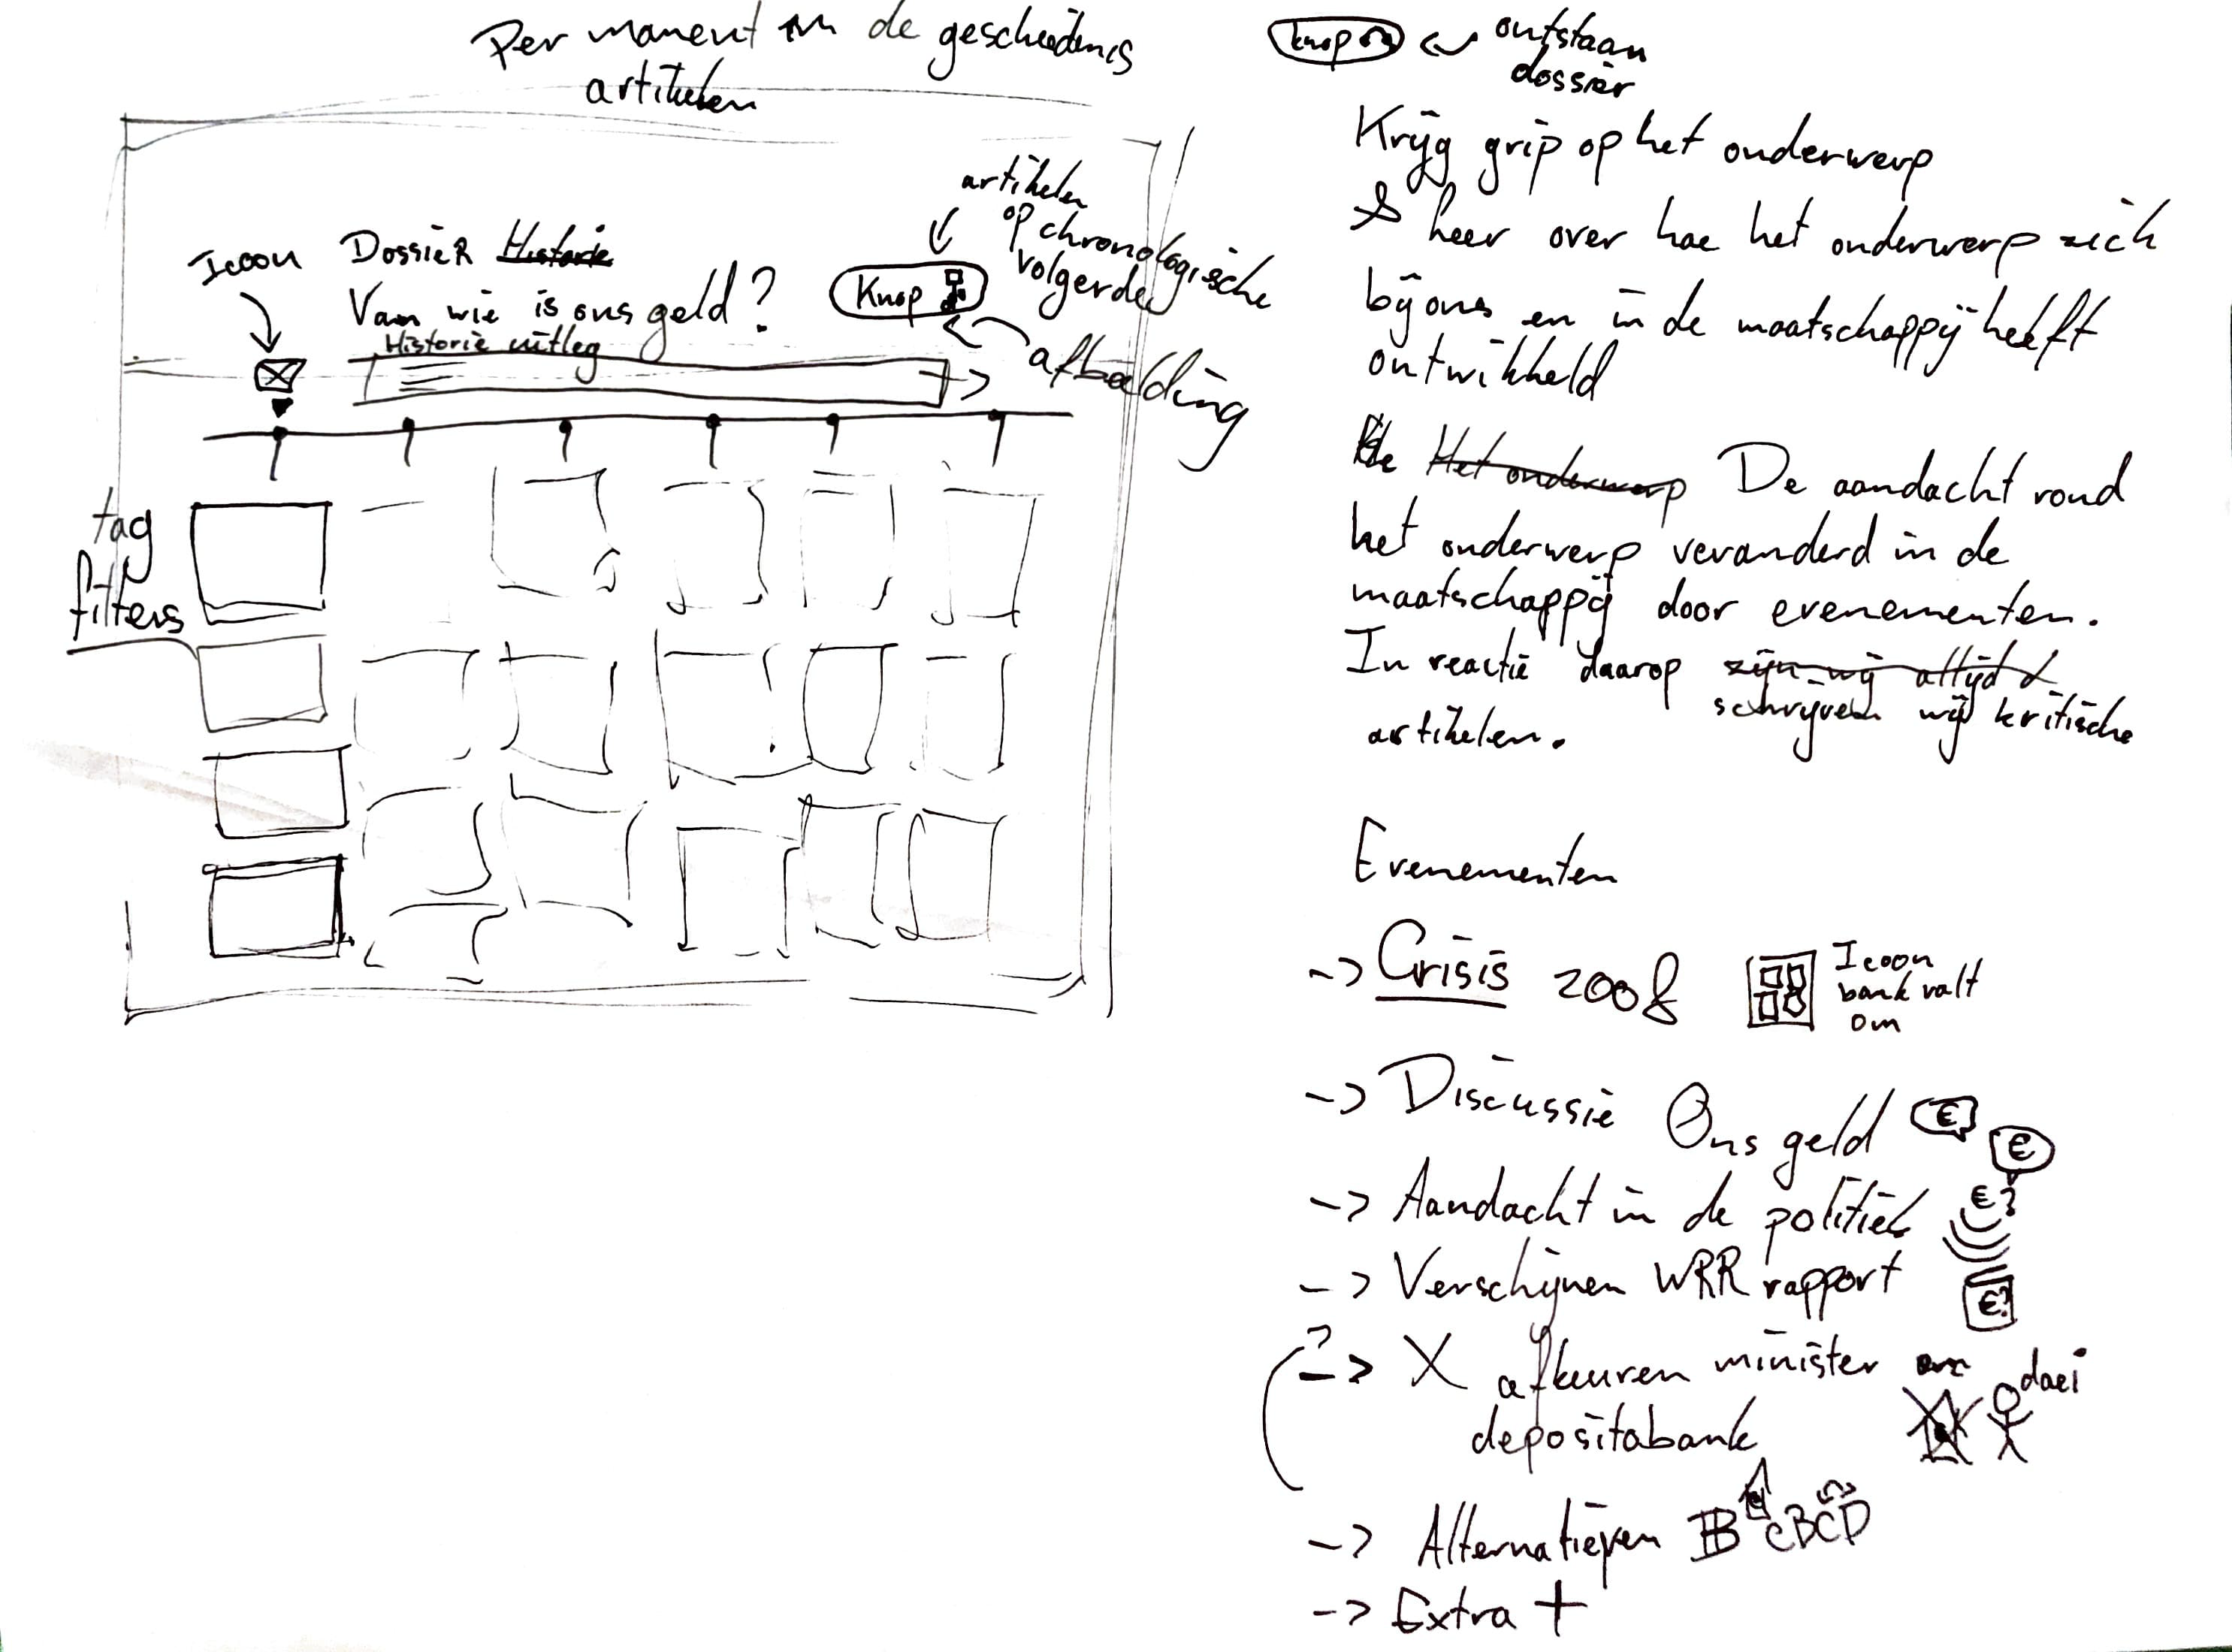 Per moment in de geschiedenis
artikelen
Icoon
Dossier Historie
Van wie is ons geld?
Historie uitleg
Knop
artikelen
op chronologische
volgerde
afbeelding
tag
filters
Knop
ontstaan
dossier
Krijg grip op het onderwerp
& leer over hoe het onderwerp zich
bij ons en in de maatschappij heeft
ontwikkeld
Het onderwerp De aandacht rond
het onderwerp veranderd in de
maatschappij door evenementen.
In reactie daarop zijn wij altijd
schrijven wij kritische
artikelen.
Evenementen
-> Crisis 2008
Icoon
bank valt
om
-> Discussie Ons geld € €
-> Aandacht in de politiek €?
-> Verschijnen WRR rapport €?
?
-> X afkeuren minister
depositobank
doei
-> Alternatieven B CBCD
-> Extra +